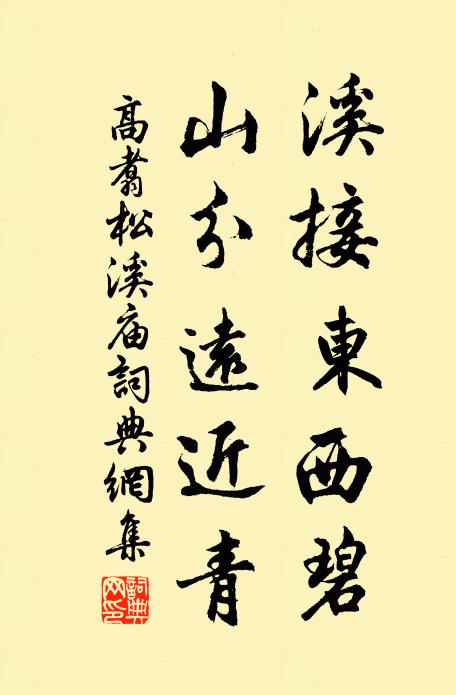 溪接東西碧
山分遠近青
高翥松溪庙詞典網集
詞典网印